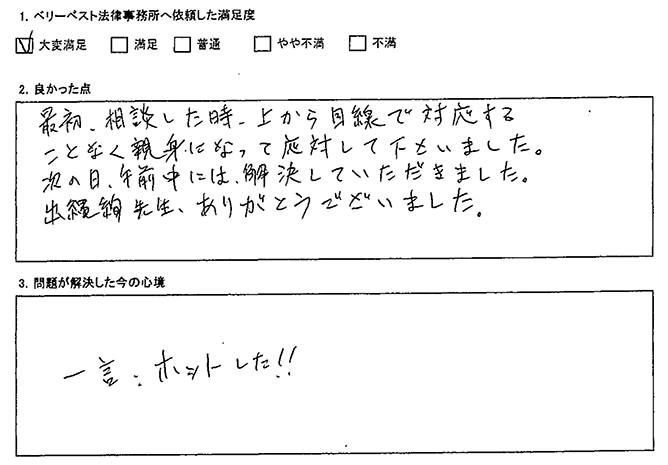 1. ベリーベスト法律事務所へ依頼した満足度
大変満足 満足 普通 やや不満 不満
2. 良かった点
最初、相談した時、上から目線で対応する
ことなく親身になって応対して下さいました。
次の日、午前中には、解決していただきました。
出縄絢先生、ありがとうございました。
3. 問題が解決した今の心境
一言:ホットした!!